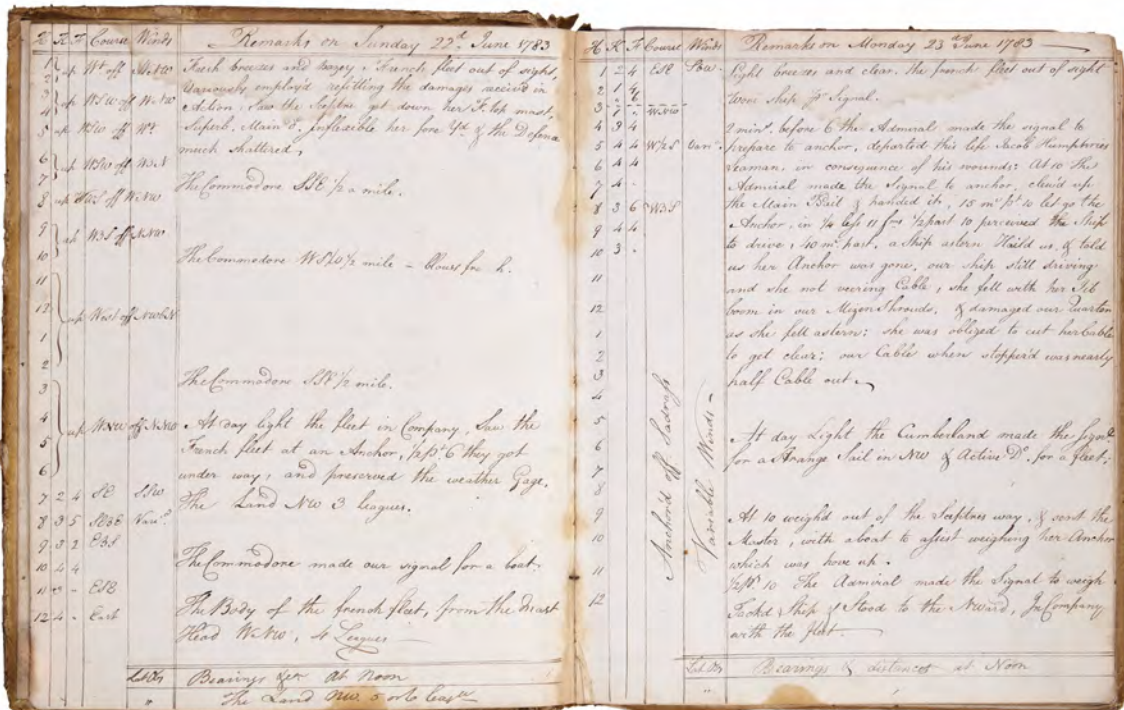 H K F Course Winds Remarks on Sunday 22d. June 1783
1 up Wt off NNW Fresh breezes and hazey. French fleet out of sight,
2 Variously employ'd refitting the damages receive in
3 up WSW off WNW Action. Saw the Sceptre get down her F. top mast,
4
5 up WSW off Wt Superb. Main Do. Inflexible her fore Yd & the Defence
6 up WSW off much shattered,
7 The Commodore SSE 1/2 a mile.
8 up off WNW
9 up off NNW
10 The Commodore 1/2 mile
11
12 up West off
1
2
3 The Commodore 1/2 mile.
4 up WNW off NNW At day light the fleet in Company, Saw the
5 French fleet at an Anchor, 1/2 pt 6 they got
6 under way, and preserved the weather Gage.
7 2 4 SE SSW The Land NW 3 leagues.
8 3 5 SEBE Vari
9 3 2 EBS
10 4 4 The Commodore made our signal for a boat.
11 3 - ESE
12 4 - East The Body of the french fleet, from the Mast
Head WNW, 4 Leagues
Bearings &ca At Noon
The Land NW. 5 or 6 Leas
H K F Course Winds Remarks on Monday 23d June 1783
1 2 4 ESE Light breezes and clear, the french fleet out of sight
2 1 4 Wore ship pr Signal.
3 WNW
4 3 4 2 mins. before 6 the Admiral made the signal to
5 4 4 W1/2S Vari prepare to anchor, departed this life Jacob Humphries
6 4 4 Seaman, in consequence of his wounds: At 10 the
7 4 - Admiral made the Signal to anchor, clew'd up
8 3 6 WBS the Main Sail & handed it, 15 ms pt 10 let go the
9 4 4 Anchor, in 1/4 less 11 fms 1/2 past 10 perceived the Ship
10 3 - to drive, 40 ms. past, a Ship astern Haild us, & told
11 us her Anchor was gone, our ship still driving
and she not veering Cable, she fell with her Jib
12 boom in our Mizen Shrouds, & damaged our Quarter
1 as she fell astern: she was obliged to cut her Cable
2 to get clear; our Cable when stopper'd was nearly
3 half Cable out.
4
5 At day Light the Cumberland made the signl.
6 for a Strange Sail in NW & Active Do. for a fleet;
7
8
9 At 10 weigh'd out of the Sceptres way, & sent the
10 Master, with a boat to assist weighing her Anchor
which was hove up.
11 1/2 pt 10 The Admiral made the Signal to weigh
12 Tack'd Ship & Stood to the NWard, In Company
with the fleet.
Anchord off Sadrass
Variable Winds
Bearings & distances at Noon